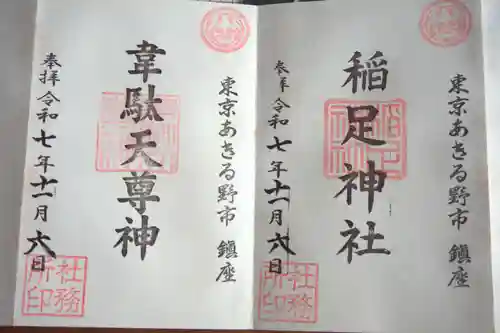 東京あきる野市 鎮座
稲足神社
奉拝 令和七年十一月六日
社務所印
東京あきる野市 鎮座
韋駄天尊神
奉拝 令和七年十一月六日
社務所印